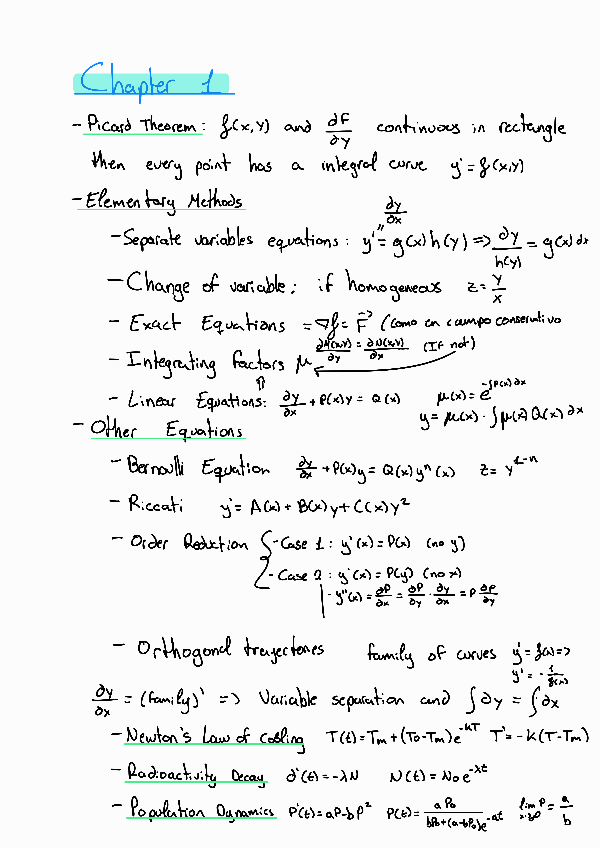 Chapter 1
- Picard Theorem: f(x,y) and ∂F/∂y continuous in rectangle
then every point has a integral curve y' = f(x,y)
- Elementary Methods
- Separate variables equations: y' = g(x) h(y) => ∂y/h(y) = g(x) dx
∂y/∂x
- Change of variable: if homogeneous z = y/x
- Exact Equations = ∇f = F (como en campo conservativo
∂M(x,y)/∂y = ∂N(x,y)/∂x (If not)
- Integrating factors μ
- Linear Equations: ∂y/∂x + P(x)y = Q(x) μ(x) = e^-∫P(x)∂x
y = μ(x) · ∫ μ(x) Q(x) ∂x
- Other Equations
- Bernoulli Equation ∂y/∂x + P(x)y = Q(x) y^n(x) z = y^1-n
- Riccati y' = A(x) + B(x)y + C(x)y²
- Order Reduction - Case 1: y'(x) = P(x) (no y)
- Case 2: y'(x) = P(y) (no x)
- y''(x) = ∂P/∂x = ∂P/∂y · ∂y/∂x = P ∂P/∂y
- Orthogonal trayectories family of curves y' = f(x) =>
y' = - 1/f(x)
∂y/∂x = (family)' => Variable separation and ∫∂y = ∫∂x
- Newton's Law of Cooling T(t) = Tm + (To - Tm)e^-kT T' = -k(T - Tm)
- Radioactivity Decay ∂'(t) = -λN N(t) = No e^-λt
- Population Dynamics P'(t) = aP - bP² P(t) = aPo/bPo + (a - bPo)e^-at lim P = a/b
x->∞